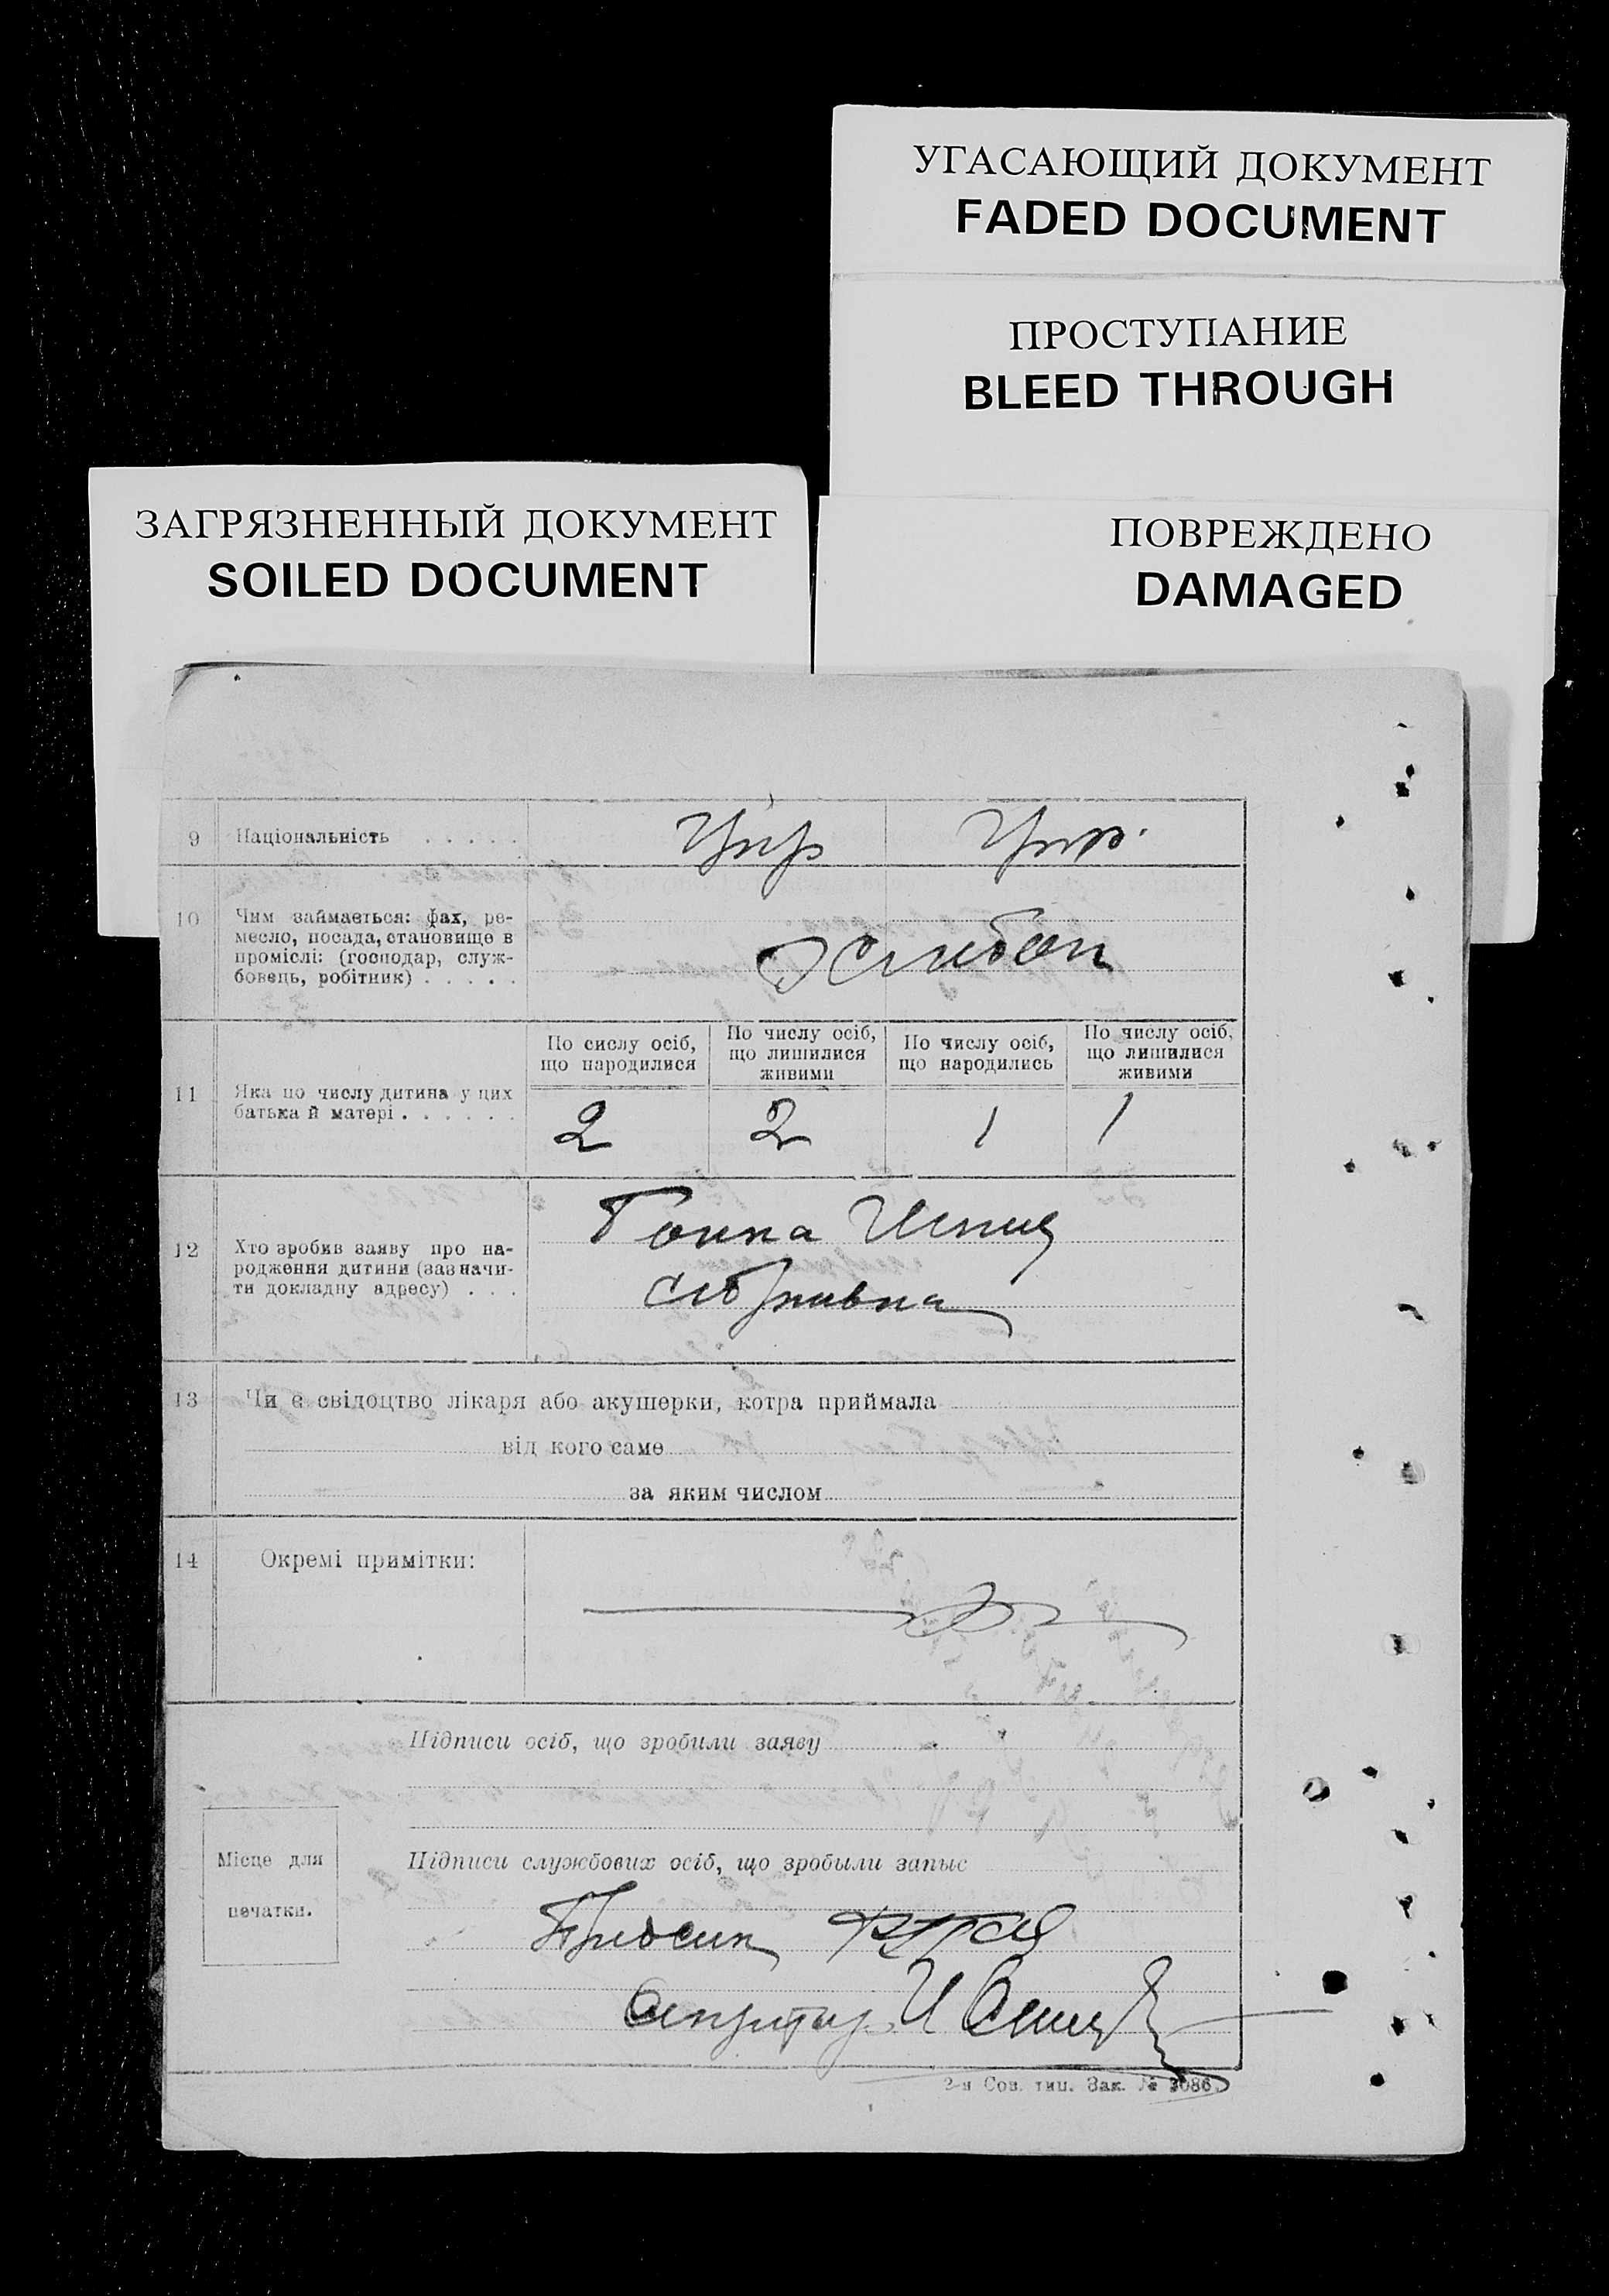 УГАСАЮЩИЙ ДОКУМЕНТ
FADED DOCUMENT
ПРОСТУПАНИЕ
BLEED THROUGH
ЗАГРЯЗНЕННЫЙ ДОКУМЕНТ
SOILED DOCUMENT
ПОВРЕЖДЕНО
DAMAGED
9 Національність . . . . .
Укр Укр.
10 Чим займається: фах, ре-
месло, посада, становище в
проміслі: (господар, служ-
бовець, робітник) . . . . .
11 Яка по числу дитина у цих
батька й матері . . . . . .
По сислу осіб,
що народилися
По числу осіб,
що лишилися
живими
По числу осіб,
що народились
По числу осіб,
що лишилися
живими
2 2 1 1
12 Хто зробив заяву про на-
родження дитини (зазначи-
ти докладну адресу) . . .
13 Чи є свідоцтво лікаря або акушерки, котра приймала
від кого саме
за яким числом
14 Окремі примітки:
Підписи осіб, що зробили заяву
Місце для
печатки.
Підписи службових осіб, що зробыли запыс
2-я Сов. тип. Зак. № 3086.